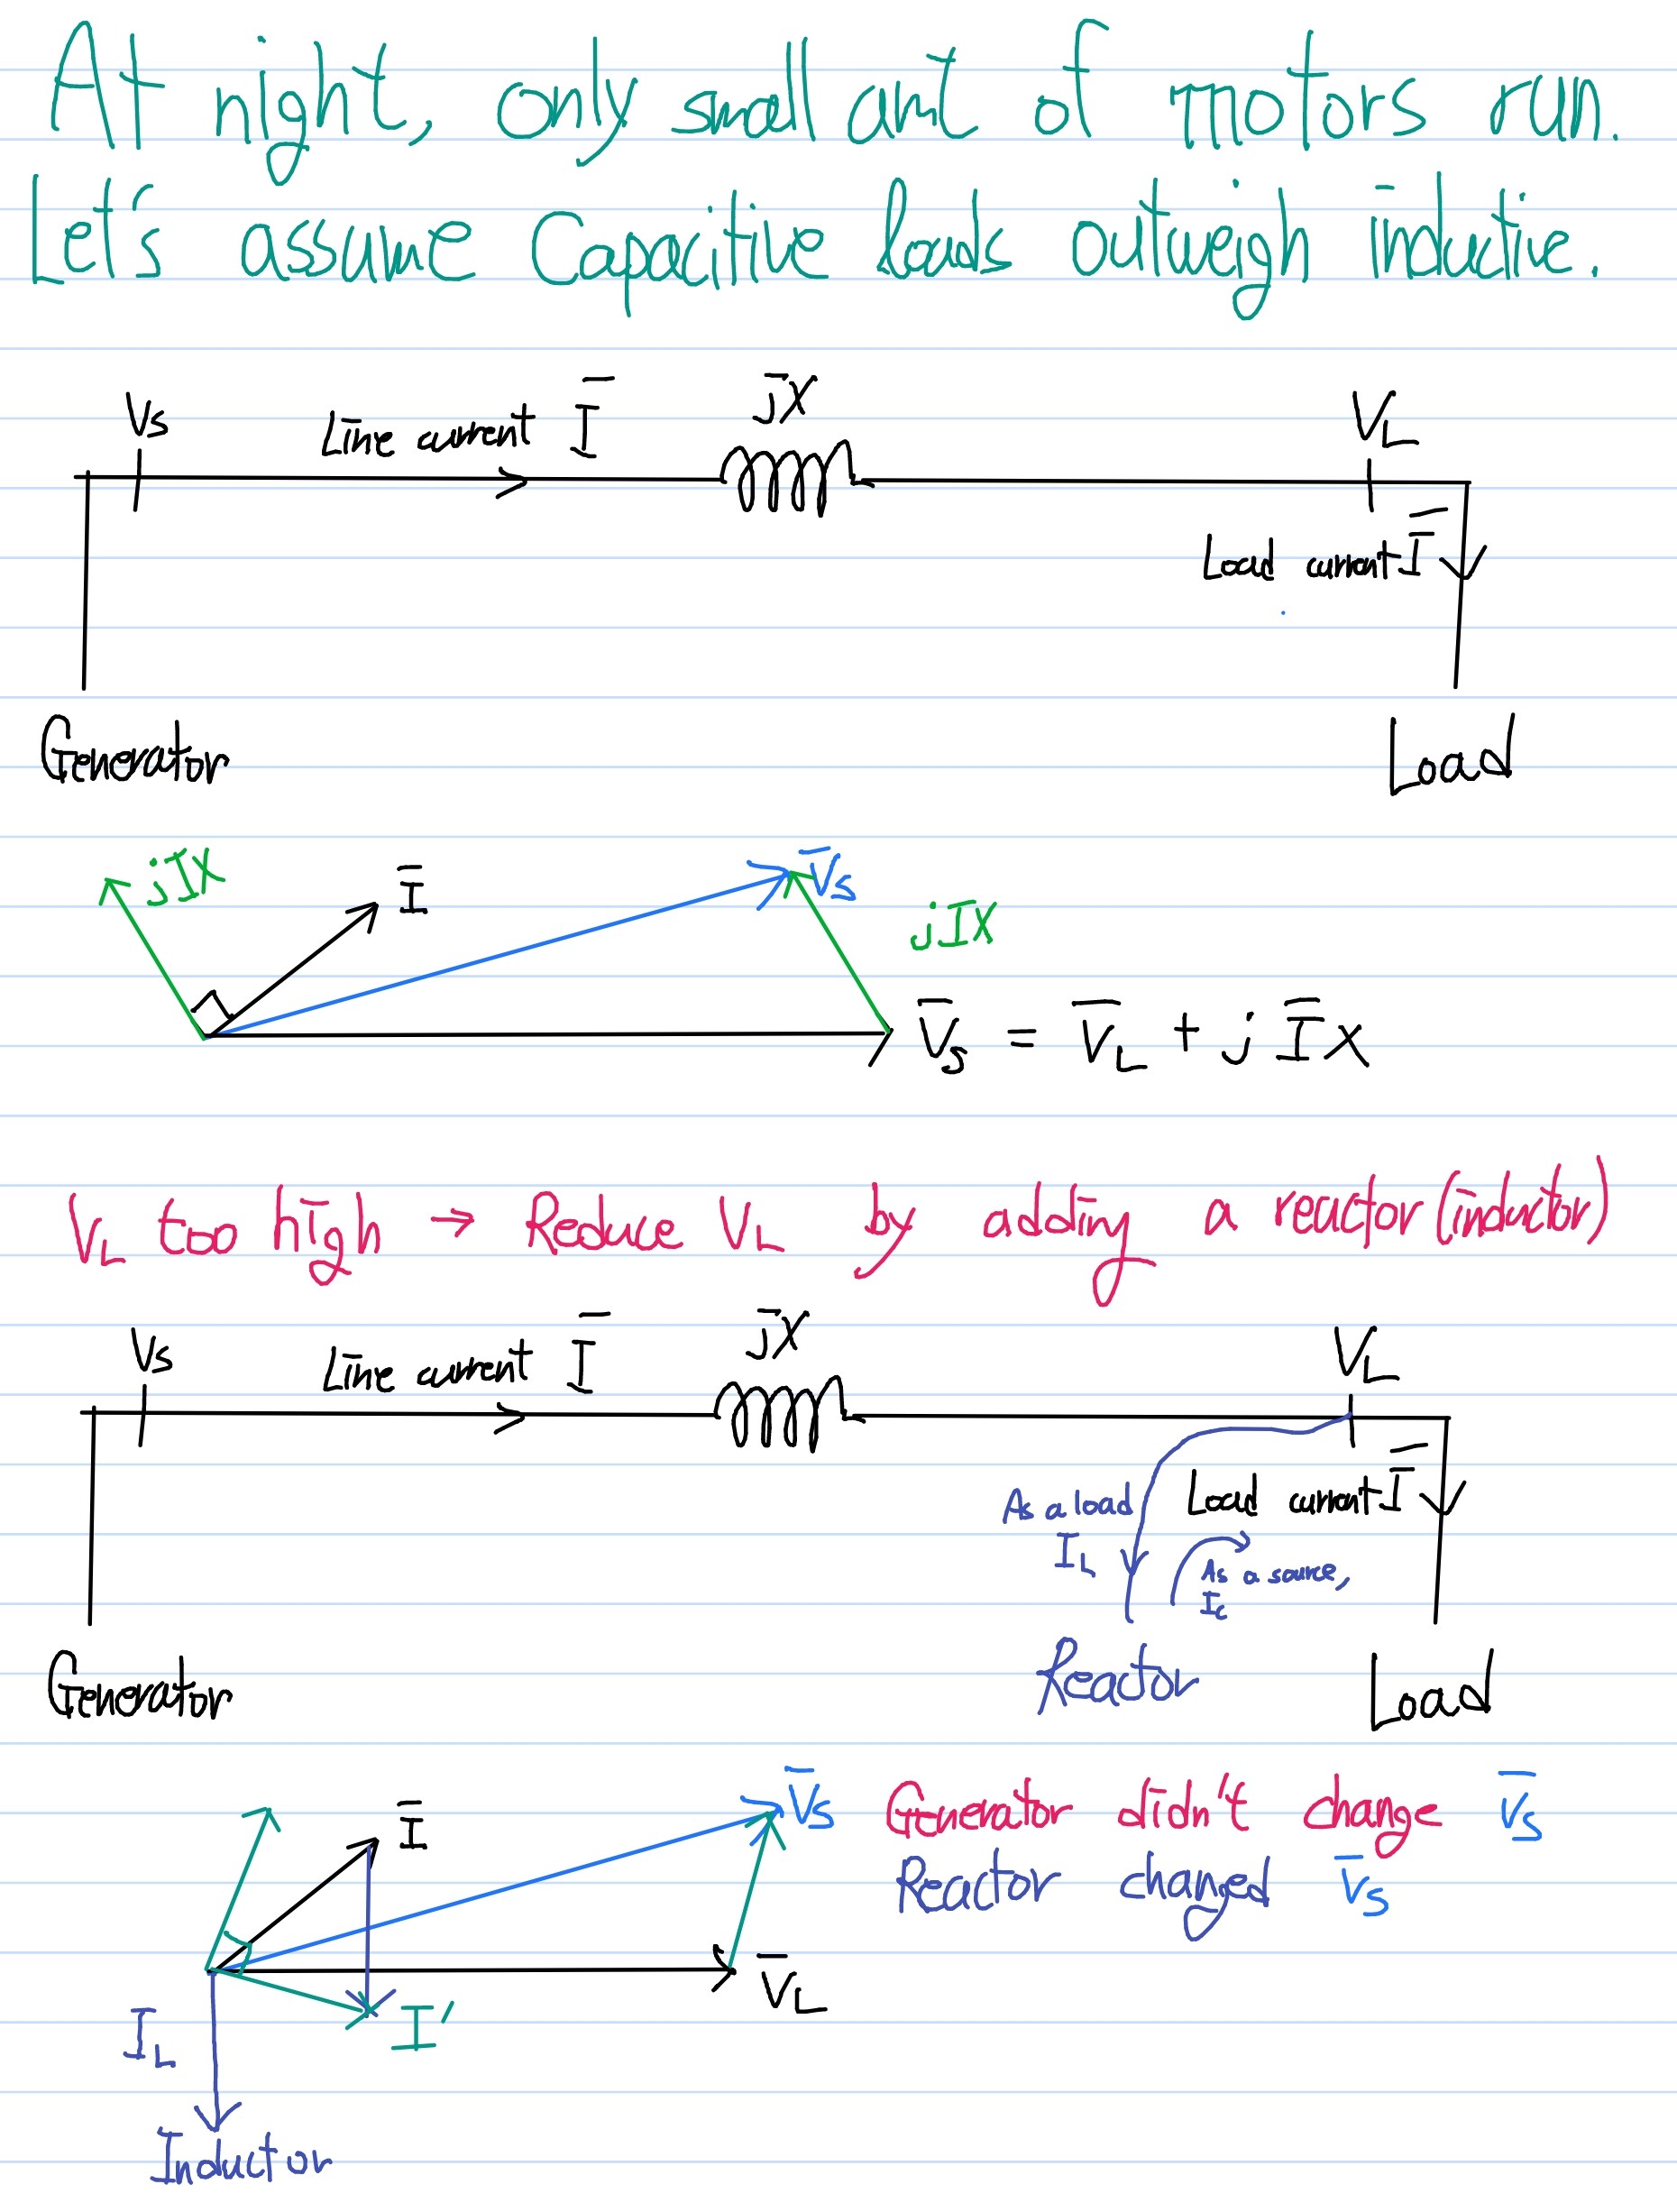 At right, only small amt of motors run.
Let's assume Capacitive loads outweigh inductive.
Vs Line current I̅ jX V_L
Load current I̅
Generator Load
jIX I̅ V̅s jIX
V̅s = V̅_L + j I̅ X
V_L too high → Reduce V_L by adding a reactor (inductor)
Vs Line current I̅ jX V_L
As a load I_L Load current I̅
As a source, Ic
Generator Reactor Load
I̅ V̅s Generator didn't change V̅s
Reactor changed V̅s
V̅_L
I_L I'
Inductor